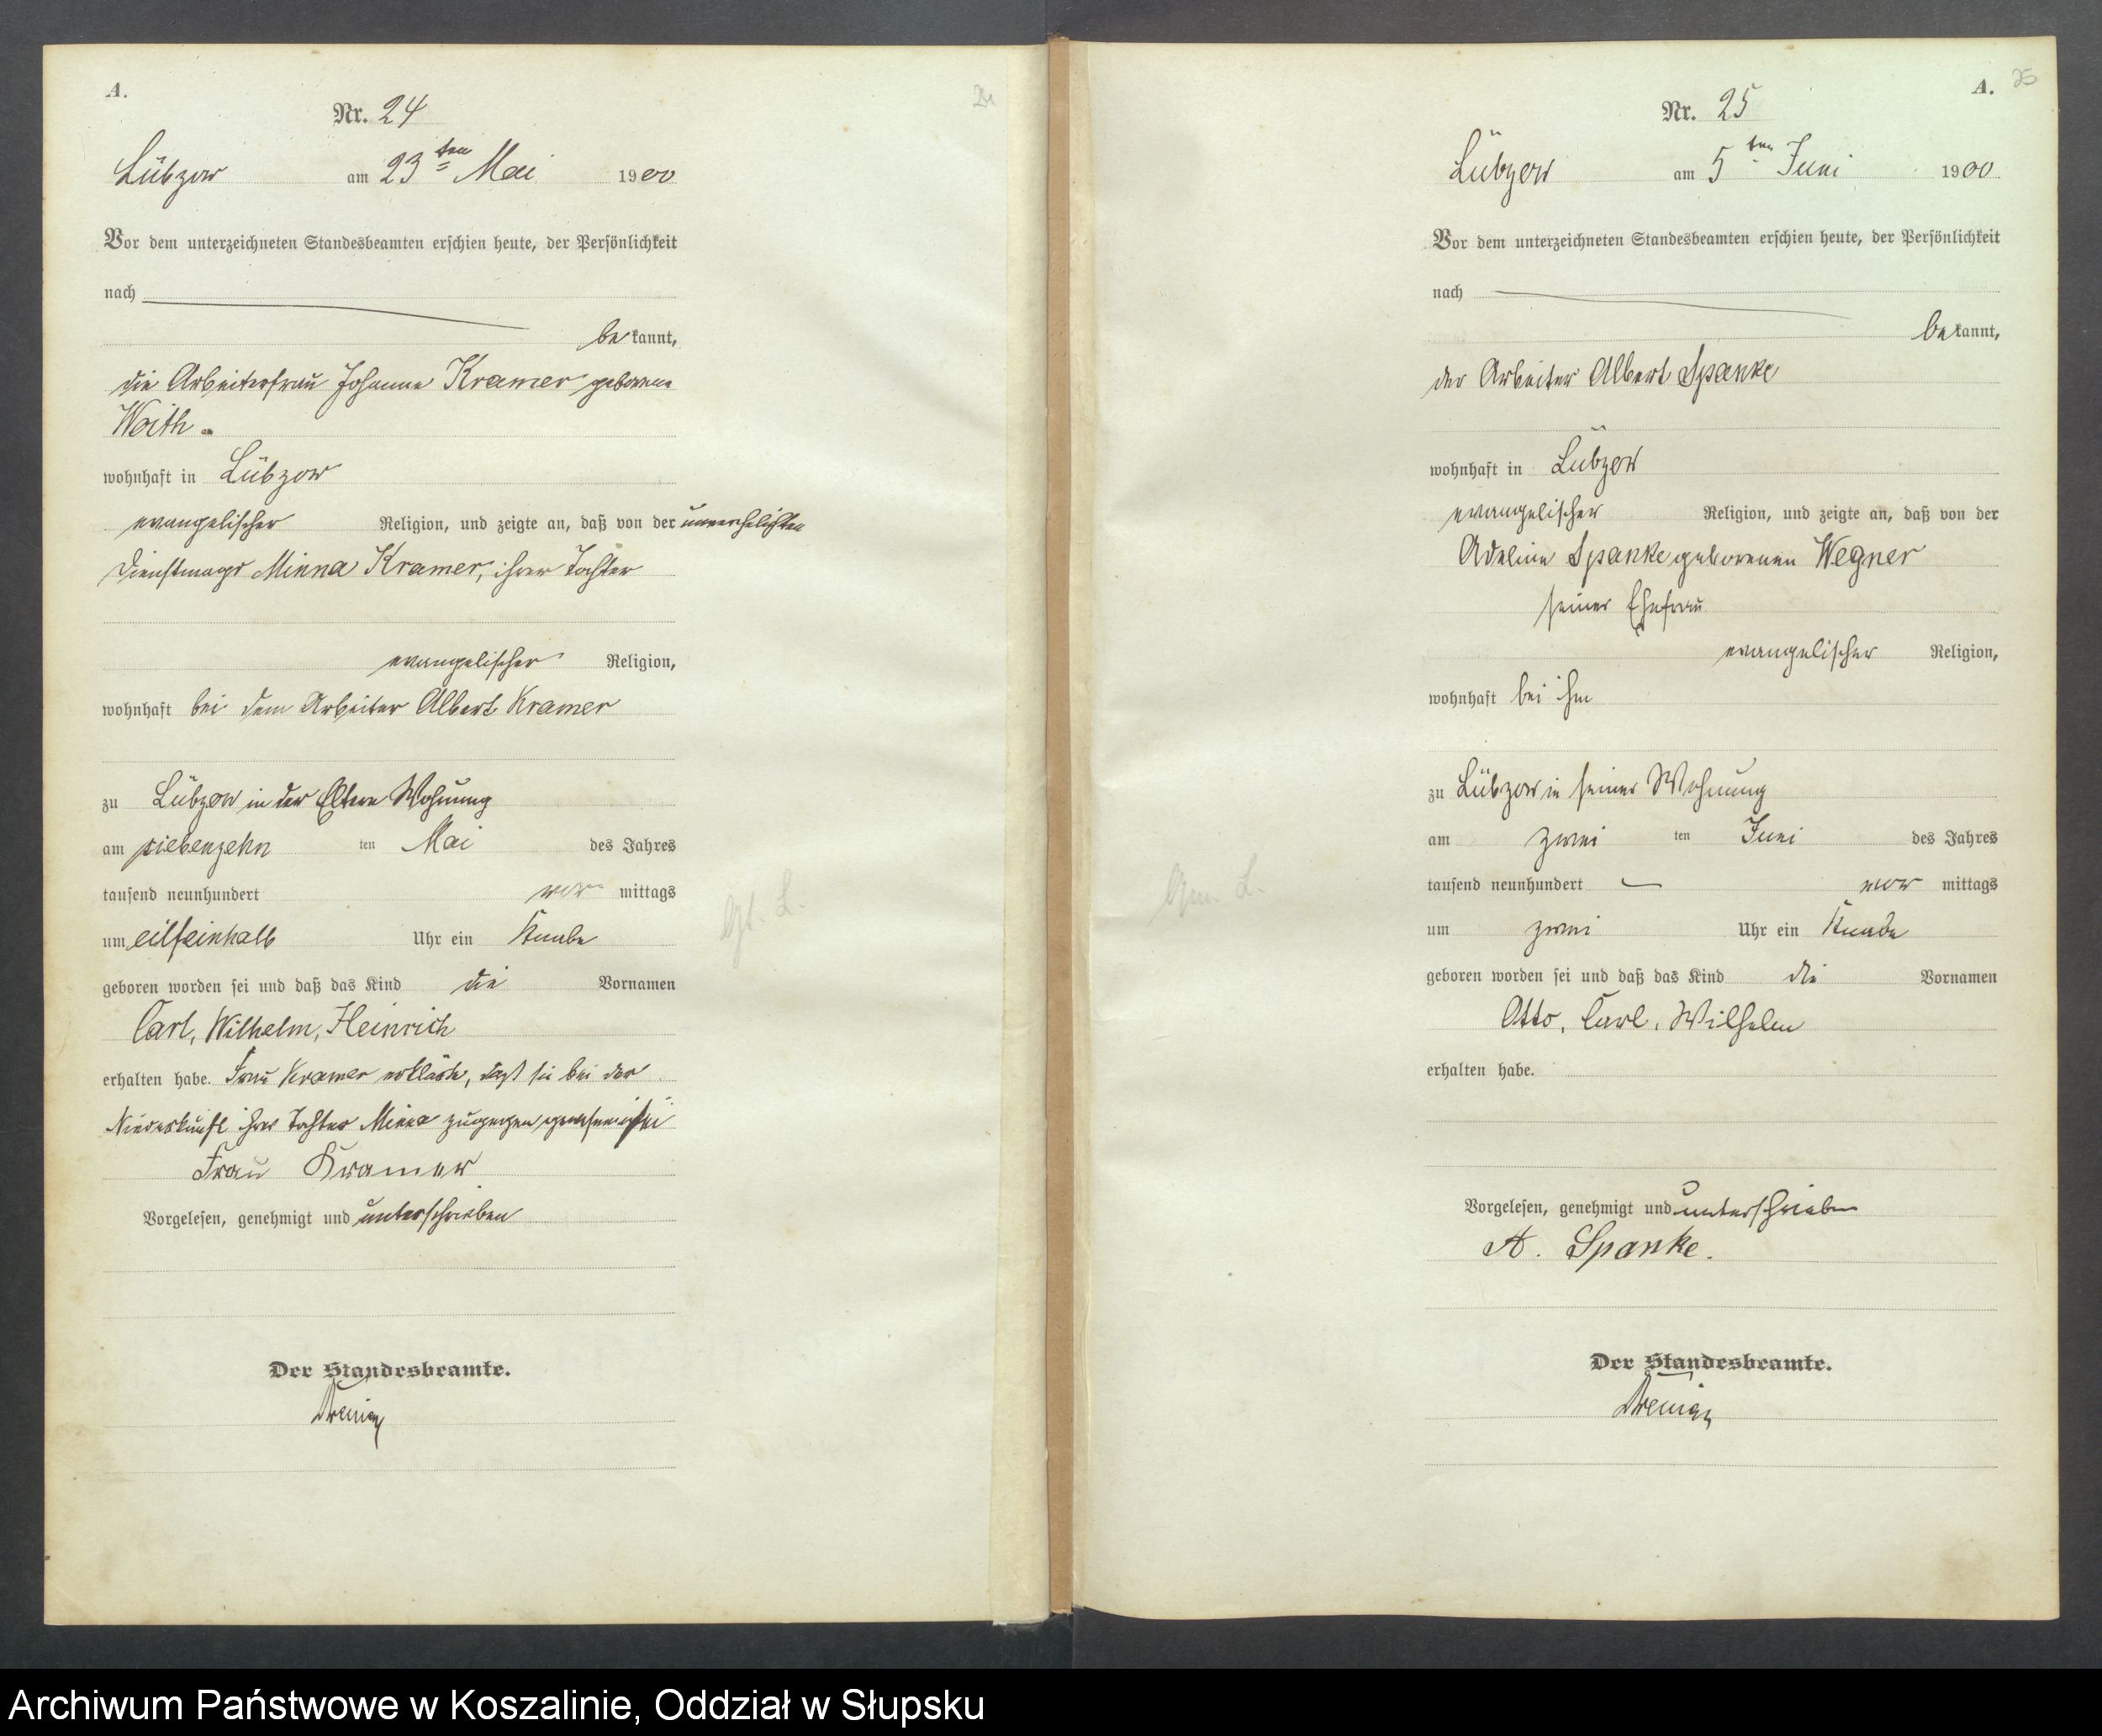 A.
Nr. 24
Lübzow am 23ten Mai 1900
Vor dem unterzeichneten Standesbeamten erschien heute, der Persönlichkeit
nach
bekannt,
die Arbeiterfrau Johanne Kramer geborene
Woith
wohnhaft in Lübzow
evangelischer Religion, und zeigte an, daß von der unverehelichten
Dienstmagd Minna Kramer, ihrer Tochter
evangelischer Religion,
wohnhaft bei dem Arbeiter Albert Kramer
zu Lübzow in der Eltern Wohnung
am siebenzehn ten Mai des Jahres
tausend neunhundert vor mittags
um eilfeinhalb Uhr ein Knabe
geboren worden sei und daß das Kind die Vornamen
Carl, Wilhelm, Heinrich
erhalten habe. Frau Kramer erklärte, daß sie bei der
Niederkunft ihrer Tochter Minna zugegen gewesen sei
Frau Kramer
Vorgelesen, genehmigt und unterschrieben
Der Standesbeamte.
A. 25
Nr. 25
Lübzow am 5ten Juni 1900
Vor dem unterzeichneten Standesbeamten erschien heute, der Persönlichkeit
nach
bekannt,
der Arbeiter Albert Spanke
wohnhaft in Lübzow
evangelischer Religion, und zeigte an, daß von der
Adeline Spanke geborenen Wegner
seiner Ehefrau
evangelischer Religion,
wohnhaft bei ihm
zu Lübzow in seiner Wohnung
am zwei ten Juni des Jahres
tausend neunhundert vor mittags
um zwei Uhr ein Knabe
geboren worden sei und daß das Kind die Vornamen
Otto, Carl, Wilhelm
erhalten habe.
Vorgelesen, genehmigt und unterschrieben
A. Spanke.
Der Standesbeamte.
Archiwum Państwowe w Koszalinie, Oddział w Słupsku